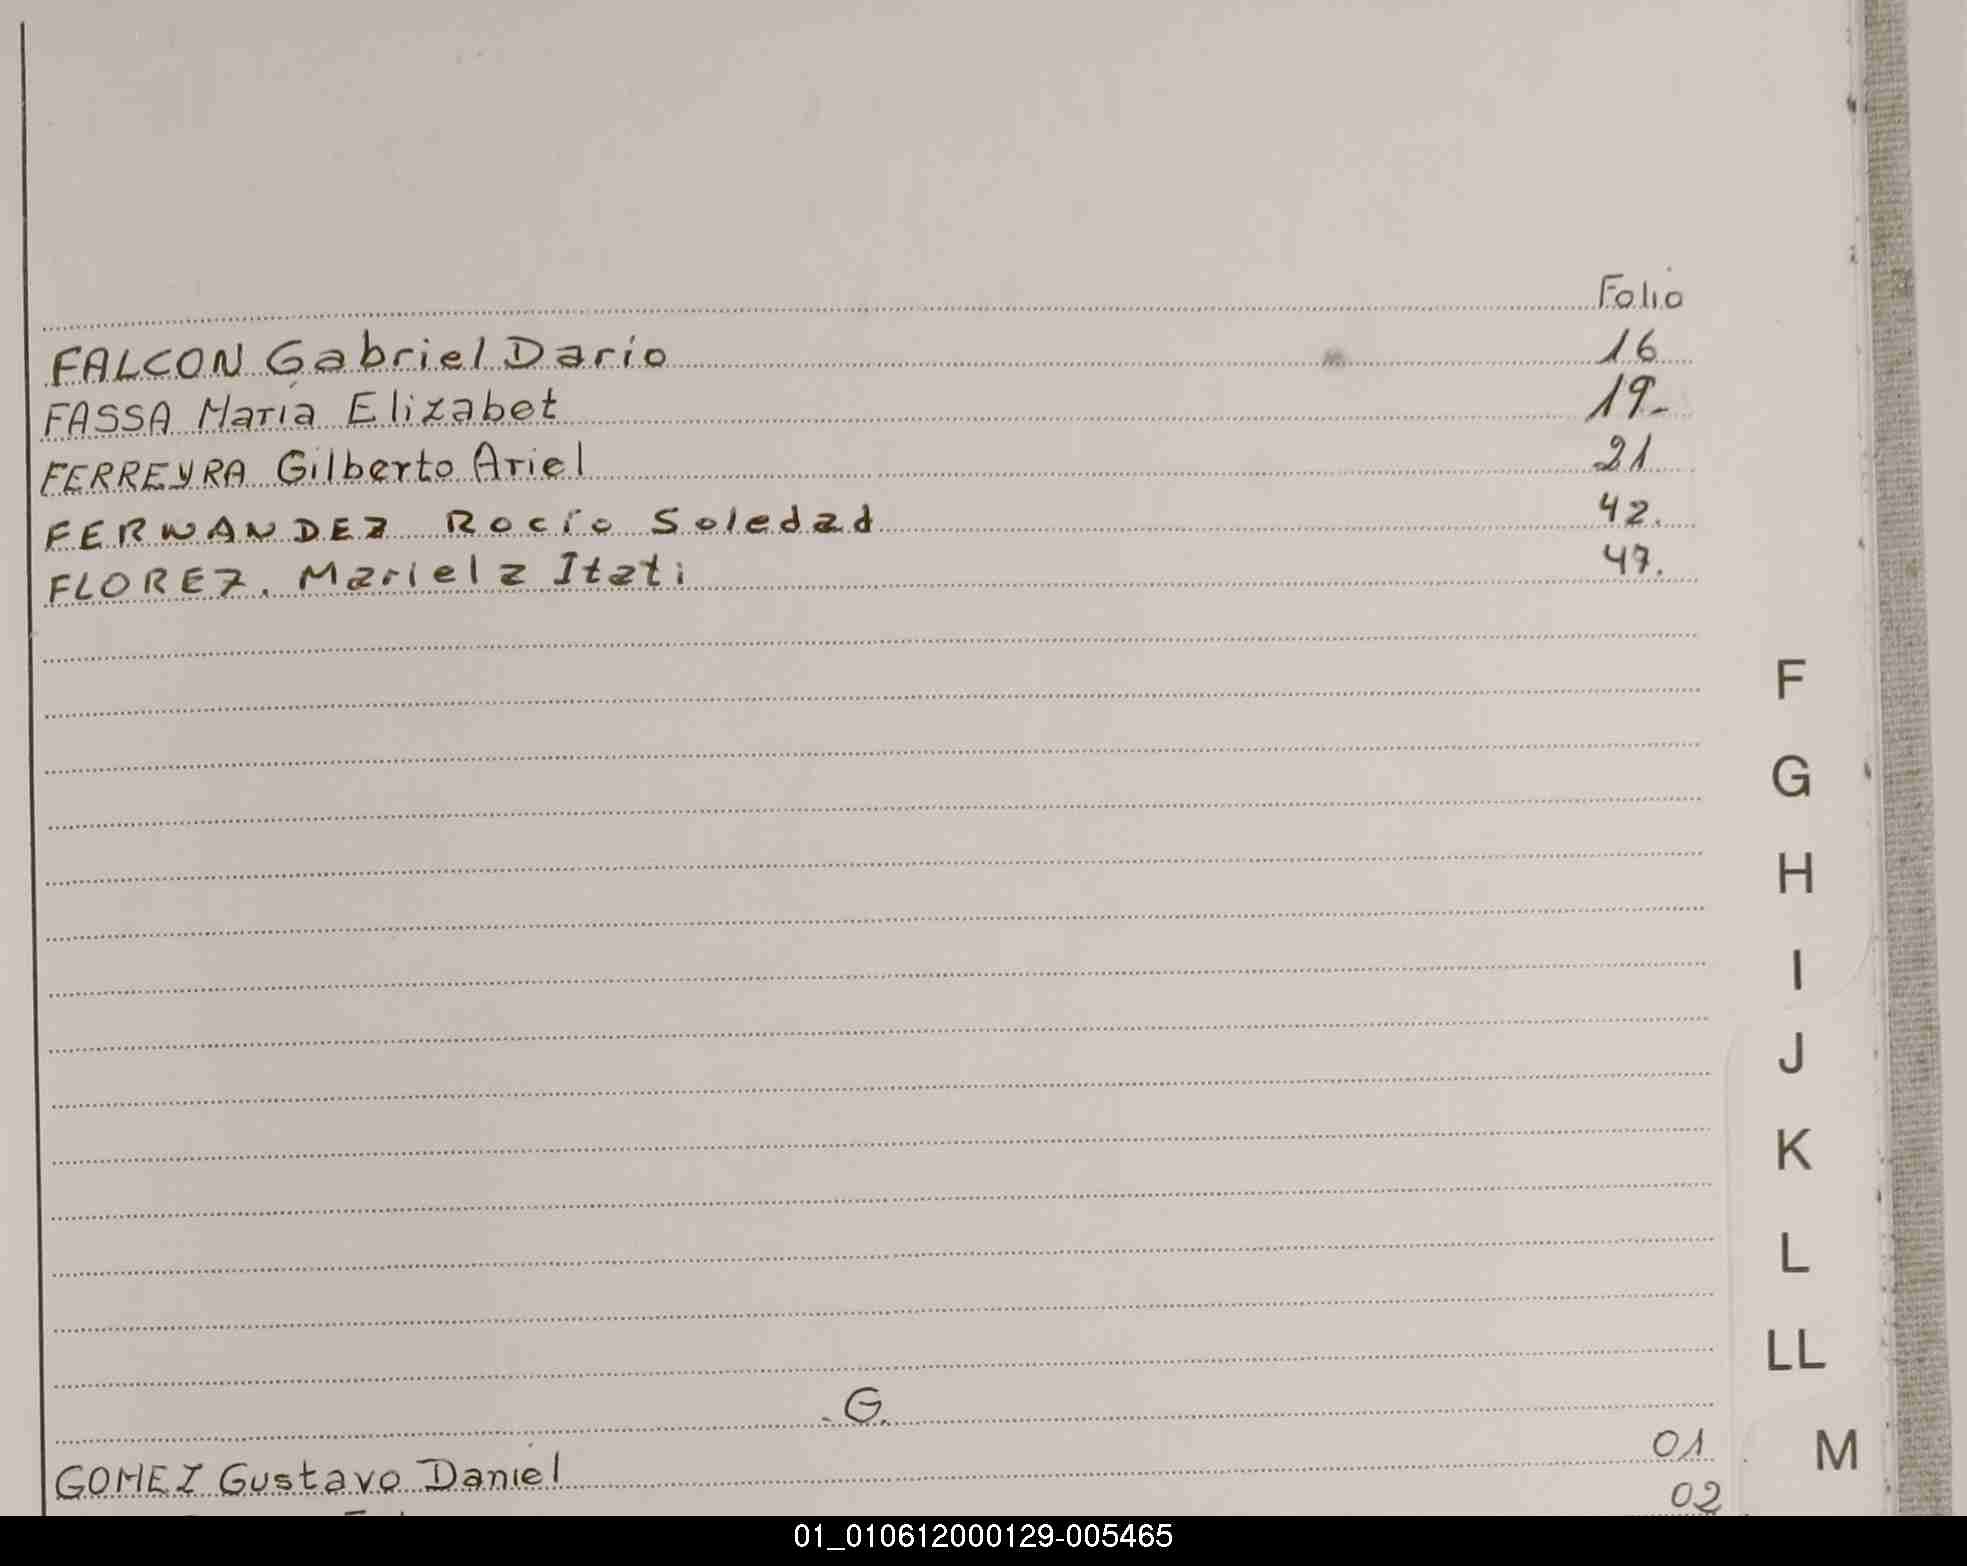 Folio
FALCON Gabriel Dario 16
FASSA María Elizabet 19-
FERREYRA Gilberto Ariel 21
FERNANDEZ Rocío Soledad 42.
FLOREZ. Mariela Itati 47.
F
G
H
I
J
K
L
LL
.G.
M
GOMEZ Gustavo Daniel 01
02
01_010612000129-005465